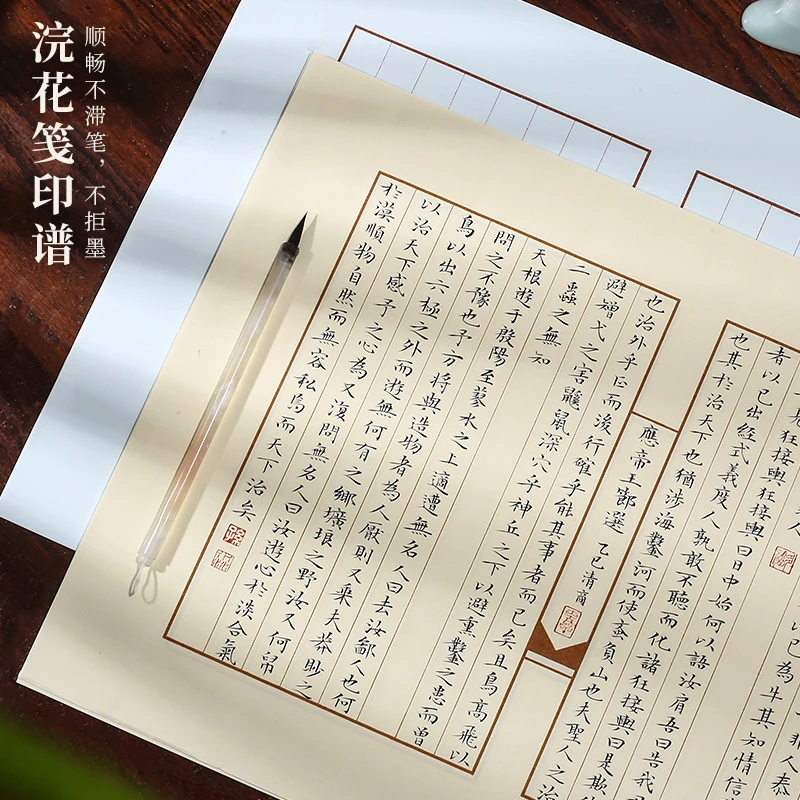 浣花笺印谱
顺畅不滞笔，不拒墨
見狂接輿狂接輿曰日中始何以語汝肩吾曰告我
者以己出經式義度人孰敢不聽而化諸狂接輿曰是欺
也其於治天下也猶涉海鑿河而使蚤負山也夫聖人之治
應帝王節選 乙巳清商
也治外乎正而後行確乎能其事者而已矣且鳥高飛以
避矰弋之害鼷鼠深穴乎神丘之下以避熏鑿之患而曾
二蟲之無知
天根遊于殷陽至蓼水之上適遭無名人曰去汝鄙人也何
問之不豫也予方將與造物者為人厭則又乘夫莽眇之
鳥以出六極之外而遊無何有之鄉壙埌之野汝又何帠
以治天下感予之心為又復問無名人曰汝遊心於淡合氣
於漠順物自然而無容私焉而天下治矣